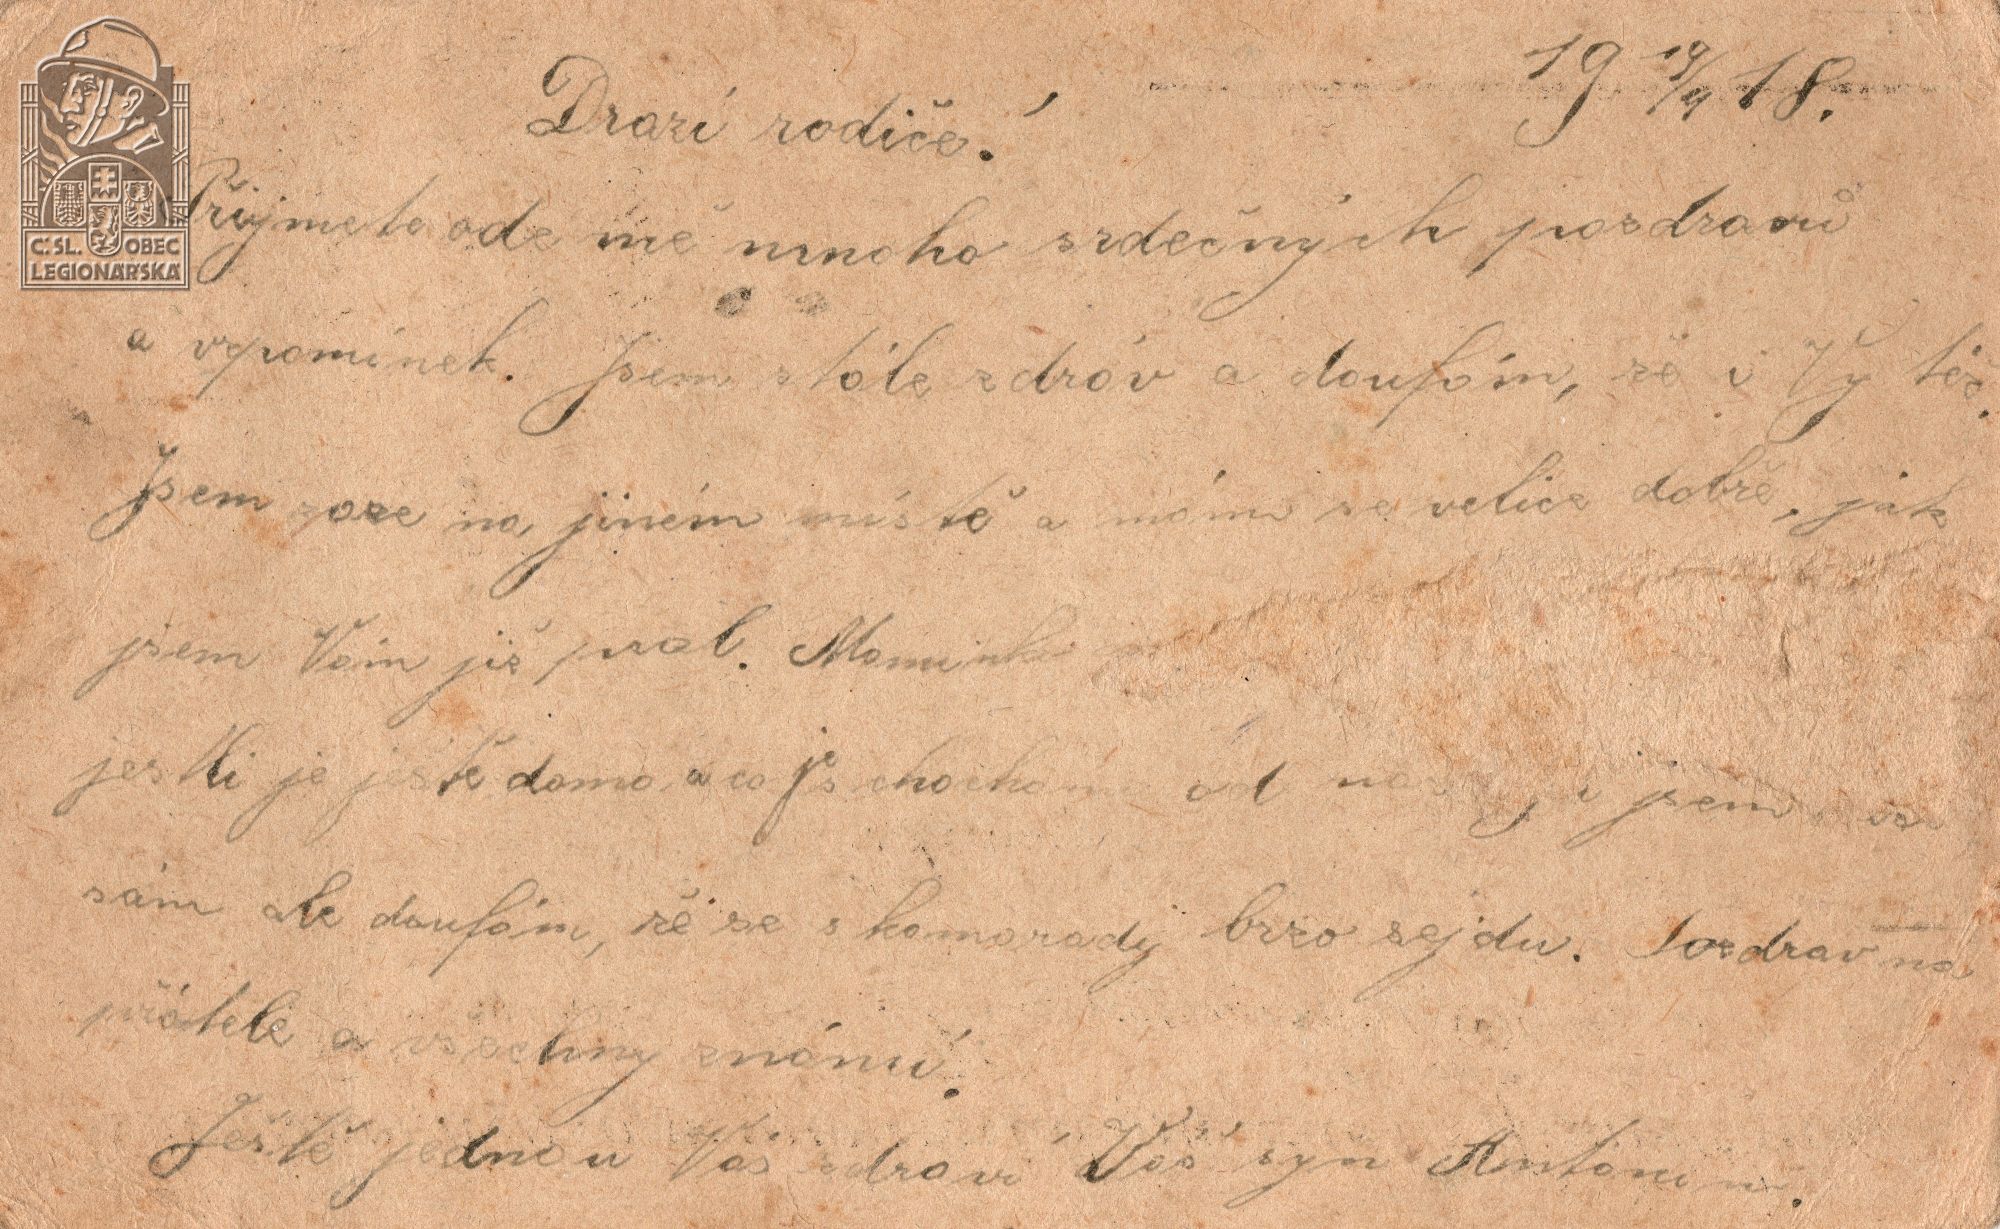 19 19/9 18.
Drazí rodiče!
Přijmete ode mě mnoho srdečných pozdravů
a vzpomínek. Jsem stále zdráv a doufám, že i Vy též.
Jsem zase na jiném místě a mám se velice dobře, jak
jsem Vám již psal. Maminko
jestli je ještě doma a co je s
od jsem
sám ale doufám, že se s kamarady brzo sejdu. Pozdrav na
přátele a všechny známí.
Ještě jednou Vás zdraví Váš syn Antonín.
Č.SL. OBEC
LEGIONÁŘSKÁ